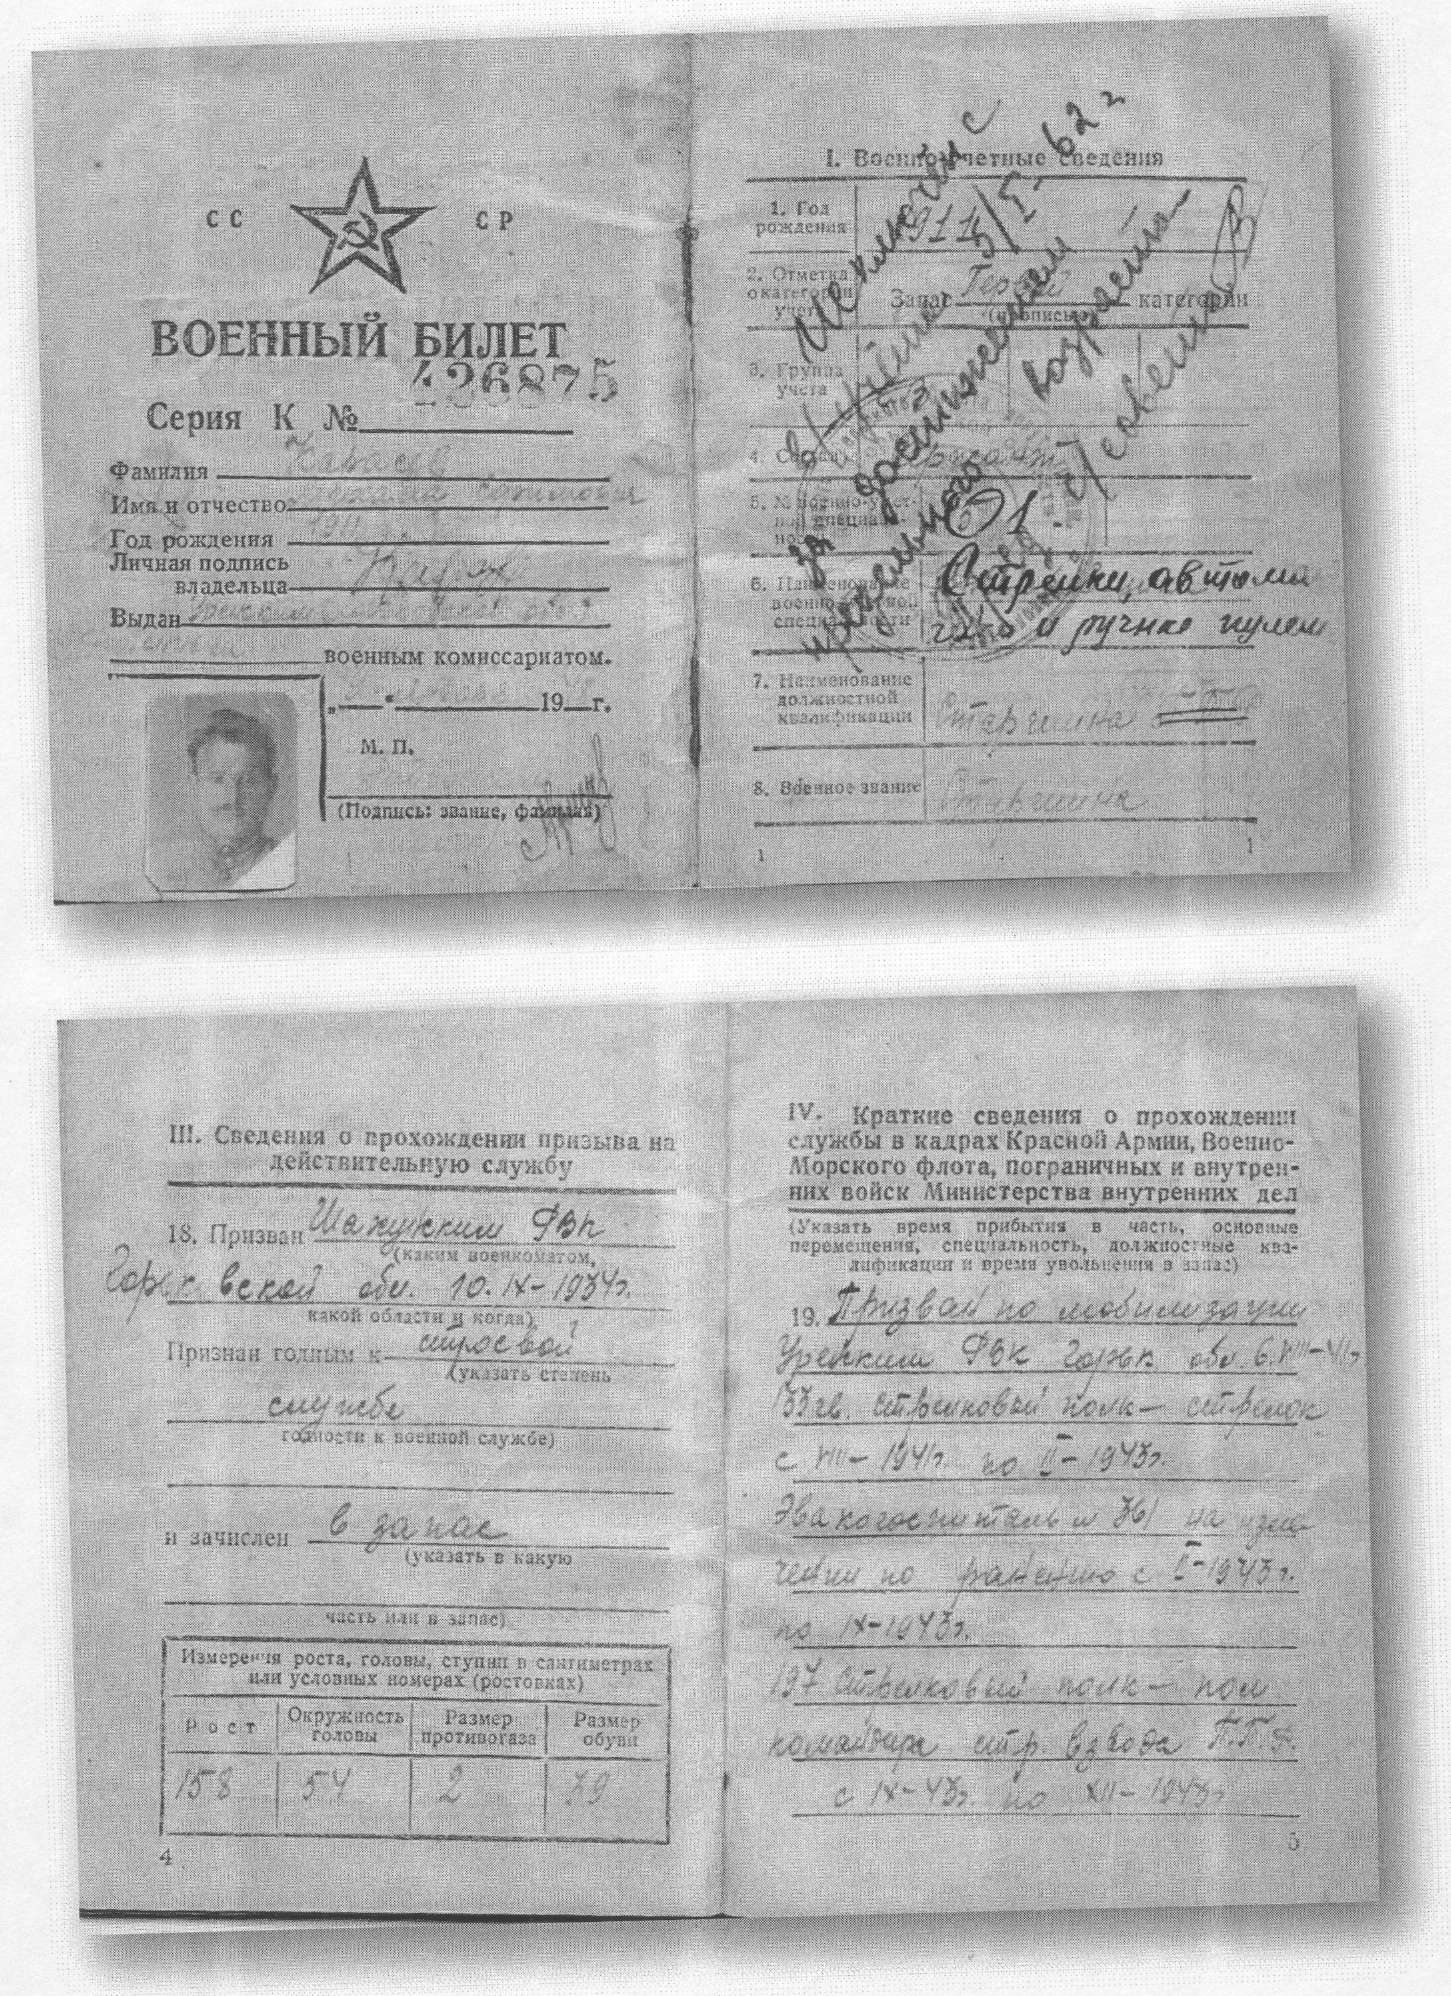 СС СР
ВОЕННЫЙ БИЛЕТ
426875
Серия К №
Фамилия Карасев
Имя и отчество
Год рождения 1911
Личная подпись
владельца
Выдан
военным комиссариатом.
„ “ 19 г.
М. П.
(Подпись: звание, фамилия)
I. Военно-учетные сведения
1. Год
рождения 1911
2. Отметка
о категории
учета
Запас категории
(прописью)
3. Группа
учета
4. Состав
5. № военно-учет-
ной специаль-
ности
6. Наименование
военно-учетной
специальности
Стрелки, автомат
чики и ручные пулем
7. Наименование
должностной
квалификации
Старшина
8. Военное звание
Старшина
Исключен с
в/учёта 5/I. 62г
за достижением
предельного возраста
1 1
III. Сведения о прохождении призыва на
действительную службу
18. Призван Шахунским РВК
(каким военкоматом,
Горьковской обл. 10.IX-1934г.
какой области и когда)
Признан годным к строевой
(указать степень
службе
годности к военной службе)
и зачислен в запас
(указать в какую
часть или в запас)
Измерения роста, головы, ступни в сантиметрах
или условных номерах (ростовках)
Рост Окружность головы Размер противогаза Размер обуви
158 54 2 39
4
IV. Краткие сведения о прохождении
службы в кадрах Красной Армии, Военно-
Морского флота, пограничных и внутрен-
них войск Министерства внутренних дел
(Указать время прибытия в часть, основные
перемещения, специальность, должностные ква-
лификации и время увольнения в запас)
19. Призван по мобилизации
Уренским РВК Горьк обл. 6.VIII-41г
133 гв. стрелковый полк — стрелок
с VIII-1941г. по II-1943г.
Эвакогоспиталь на изле
чении по ранению с II-1943г.
по IX-1943г.
197 стрелковый полк — пом
командира стр. взвода
с IX-43г. по XII-1943г
5